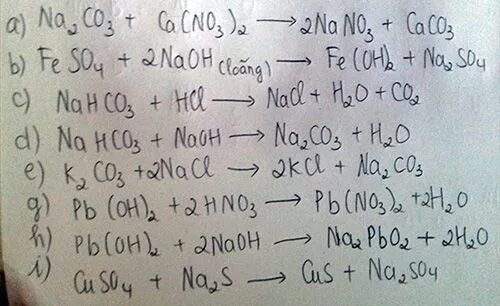 a) Na₂CO₃ + Ca(NO₃)₂ ⟶ 2NaNO₃ + CaCO₃
b) FeSO₄ + 2NaOH (loãng) ⟶ Fe(OH)₂ + Na₂SO₄
c) NaHCO₃ + HCl ⟶ NaCl + H₂O + CO₂
d) NaHCO₃ + NaOH ⟶ Na₂CO₃ + H₂O
e) K₂CO₃ + 2NaCl ⟶ 2KCl + Na₂CO₃
g) Pb(OH)₂ + 2HNO₃ ⟶ Pb(NO₃)₂ + 2H₂O
h) Pb(OH)₂ + 2NaOH ⟶ Na₂PbO₂ + 2H₂O
i) CuSO₄ + Na₂S ⟶ CuS + Na₂SO₄